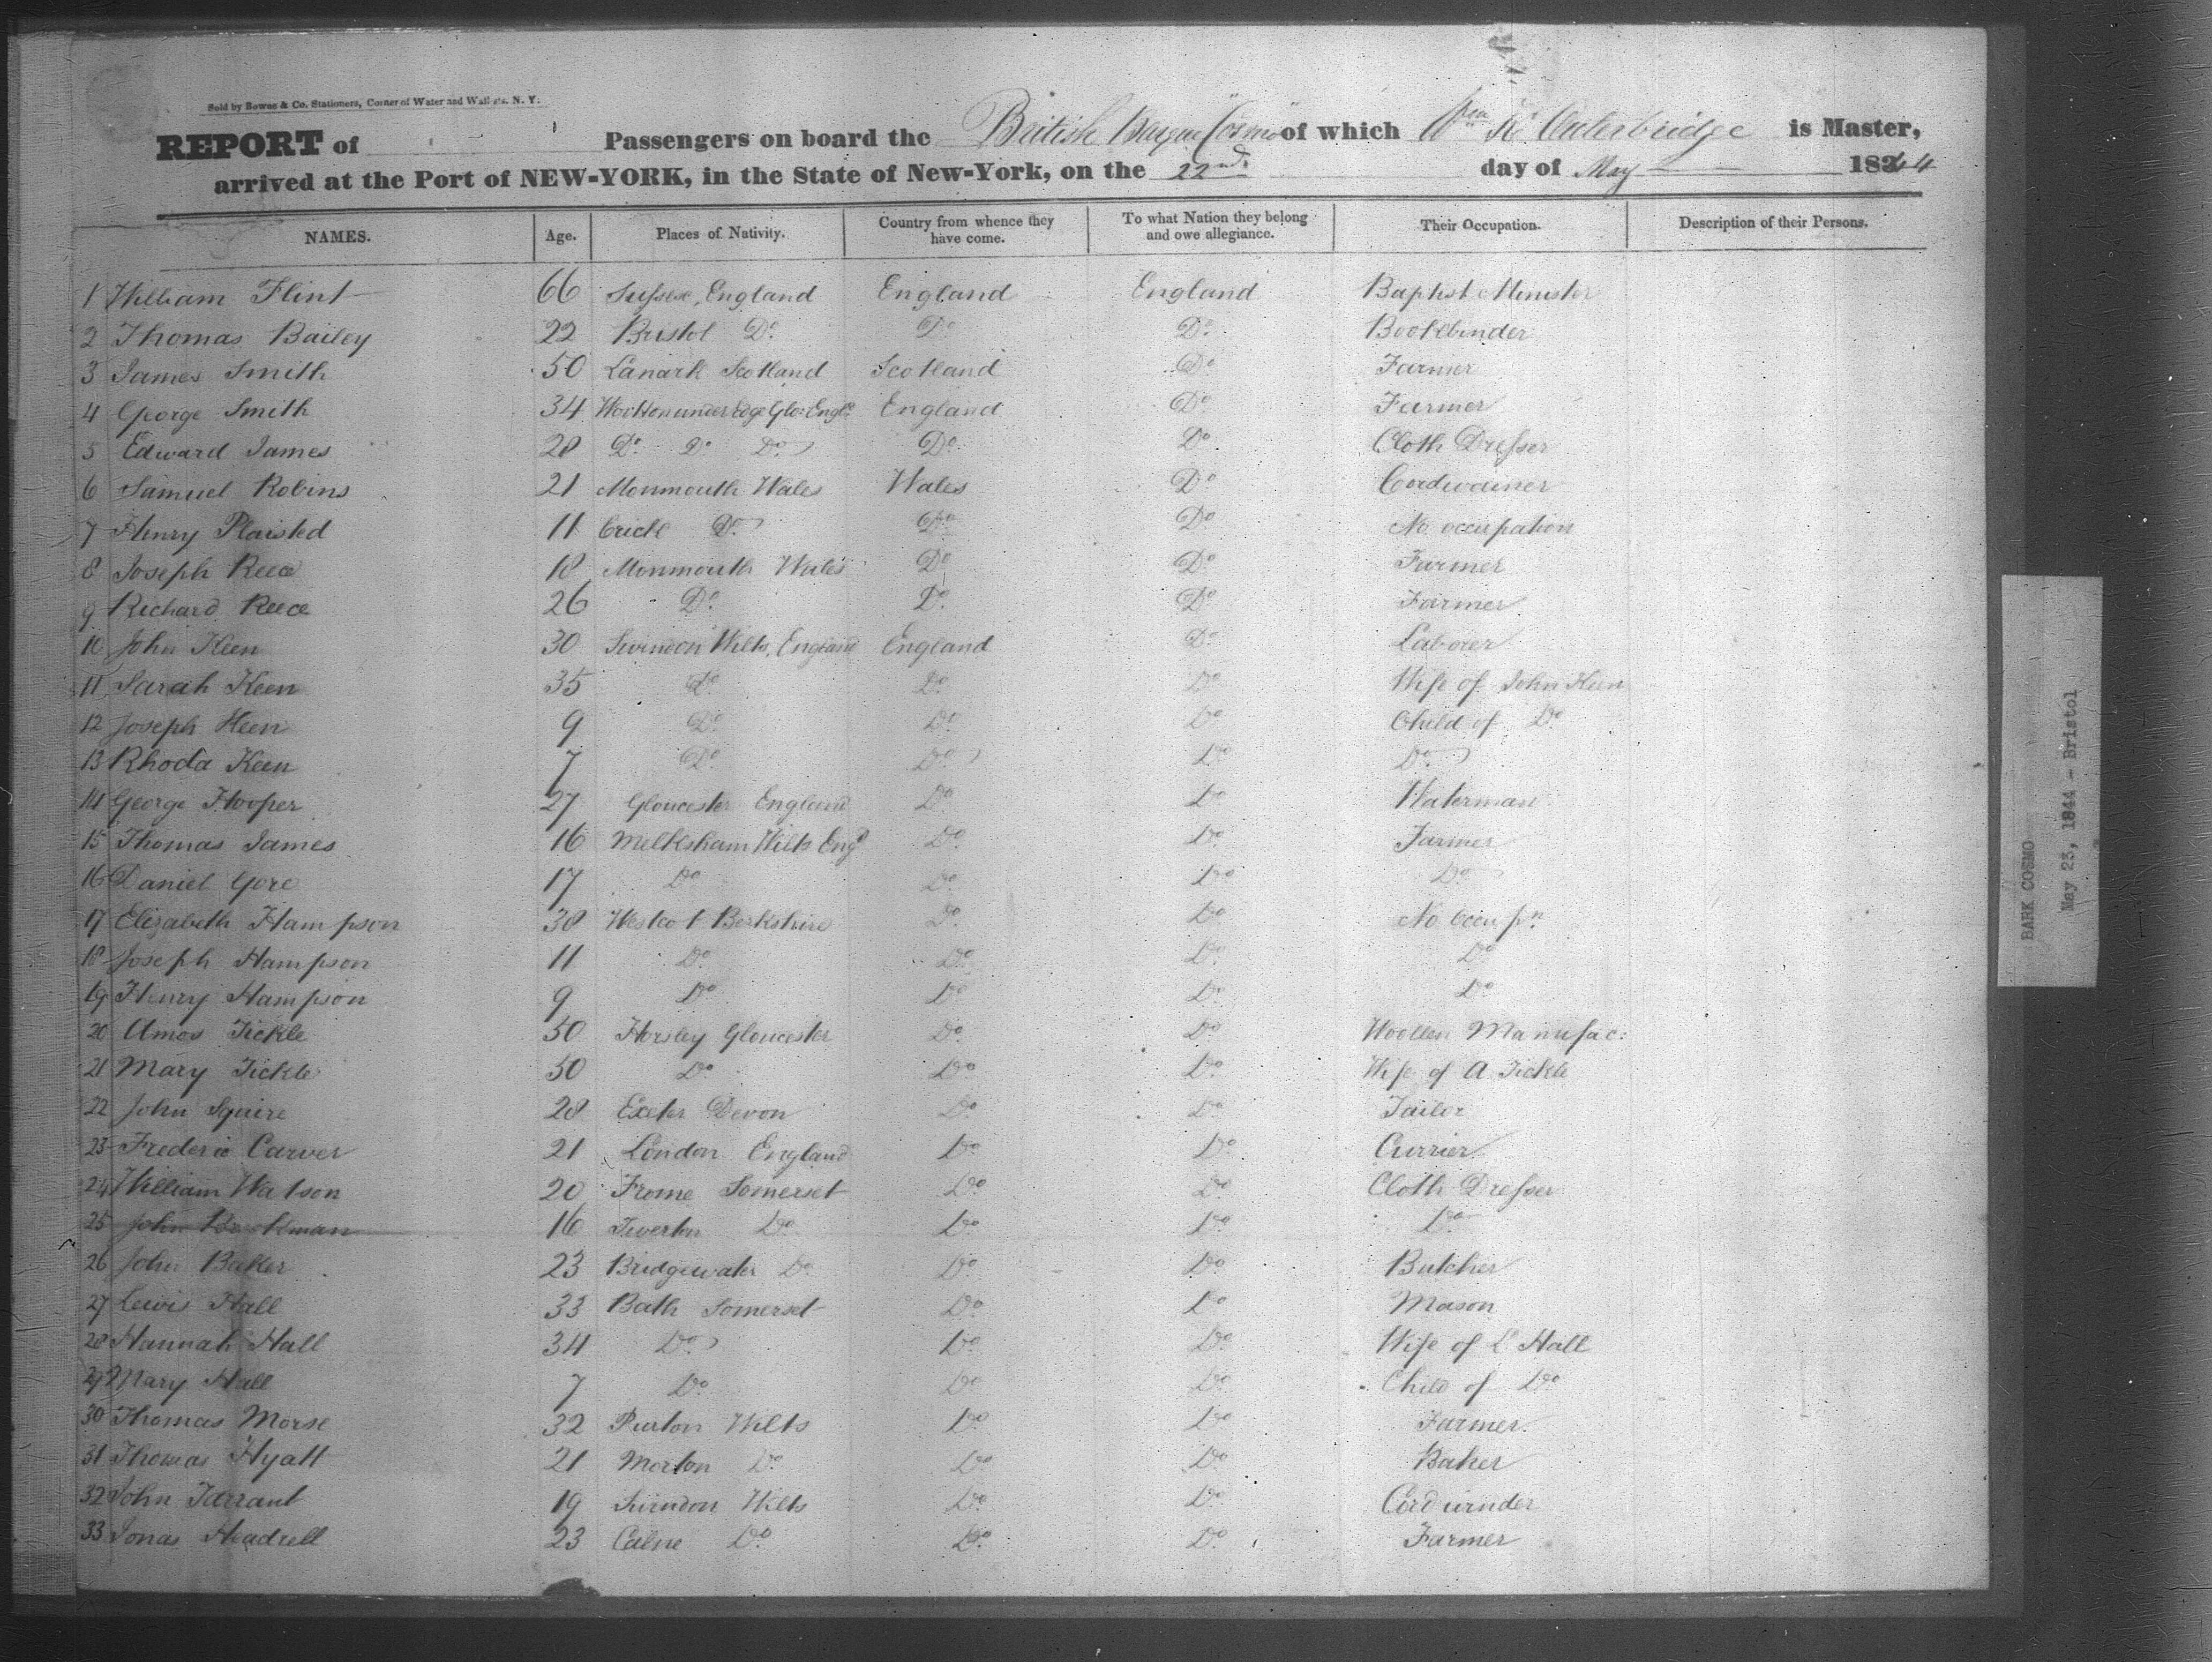 Sold by Bowne & Co. Stationers, Corner of Water and Wall sts. N. Y.
REPORT of Passengers on board the British Barque "Cosmo" of which Wm R. Outerbridge is Master,
arrived at the Port of NEW-YORK, in the State of New-York, on the 22nd day of May 1844
NAMES. Age. Places of Nativity. Country from whence they have come. To what Nation they belong and owe allegiance. Their Occupation. Description of their Persons.
1 William Flint 66 Sussex, England England England Baptist Minister
2 Thomas Bailey 22 Bristol Do. Do. Do. Bookbinder
3 James Smith 50 Lanark Scotland Scotland Do. Farmer
4 George Smith 34 Wootton under Edge Glo: Engld. England Do. Farmer
5 Edward James 28 Do. Do. Do. Do. Do. Cloth Dresser
6 Samuel Robins 21 Monmouth Wales Wales Do. Cordwainer
7 Henry Plaisted 11 Crick Do. Do. Do. No occupation
8 Joseph Reece 18 Monmouth Wales Do. Do. Farmer
9 Richard Reece 26 Do. Do. Do. Farmer
10 John Keen 30 Swindon Wilts, England England Do. Laborer
11 Sarah Keen 35 Do. Do. Do. Wife of John Keen
12 Joseph Keen 9 Do. Do. Do. Child of Do
13 Rhoda Keen 7 Do. Do. Do. Do.
14 George Hooper 27 Gloucester England Do. Do. Waterman
15 Thomas James 16 Melksham Wilts Engd Do. Do. Farmer
16 Daniel Gore 17 Do Do. Do Do
17 Elizabeth Hampson 38 Westcot Berkshire Do. Do No Occupn.
18 Joseph Hampson 11 Do. Do. Do. Do
19 Henry Hampson 9 Do Do Do. Do
20 Amos Tickle 50 Horsley Gloucester Do. Do Woollen Manufac:
21 Mary Tickle 50 Do. Do. Do. Wife of A Tickle
22 John Squire 28 Exeter Devon Do Do. Tailor
23 Frederic Carver 21 London England Do. Do. Currier
24 William Watson 20 Frome Somerset Do Do Cloth Dresser
25 John 16 Tiverton Do Do. Do. Do
26 John Baker 23 Bridgewater Do Do. Do. Butcher
27 Lewis Hall 33 Bath Somerset Do. Do Mason
28 Hannah Hall 34 Do. Do. Do. Wife of L Hall
29 Mary Hall 7 Do. Do Do. Child of Do
30 Thomas Morse 32 Purton Wilts Do Do. Farmer.
31 Thomas Hyatt 21 Morton Do Do. Do. Baker
32 John Tarrant 19 Swindon Wilts Do. Do.
33 Jonas Headrell 23 Calne Do. Do. Do. Farmer
BARK COSMO
May 23, 1844 - Bristol